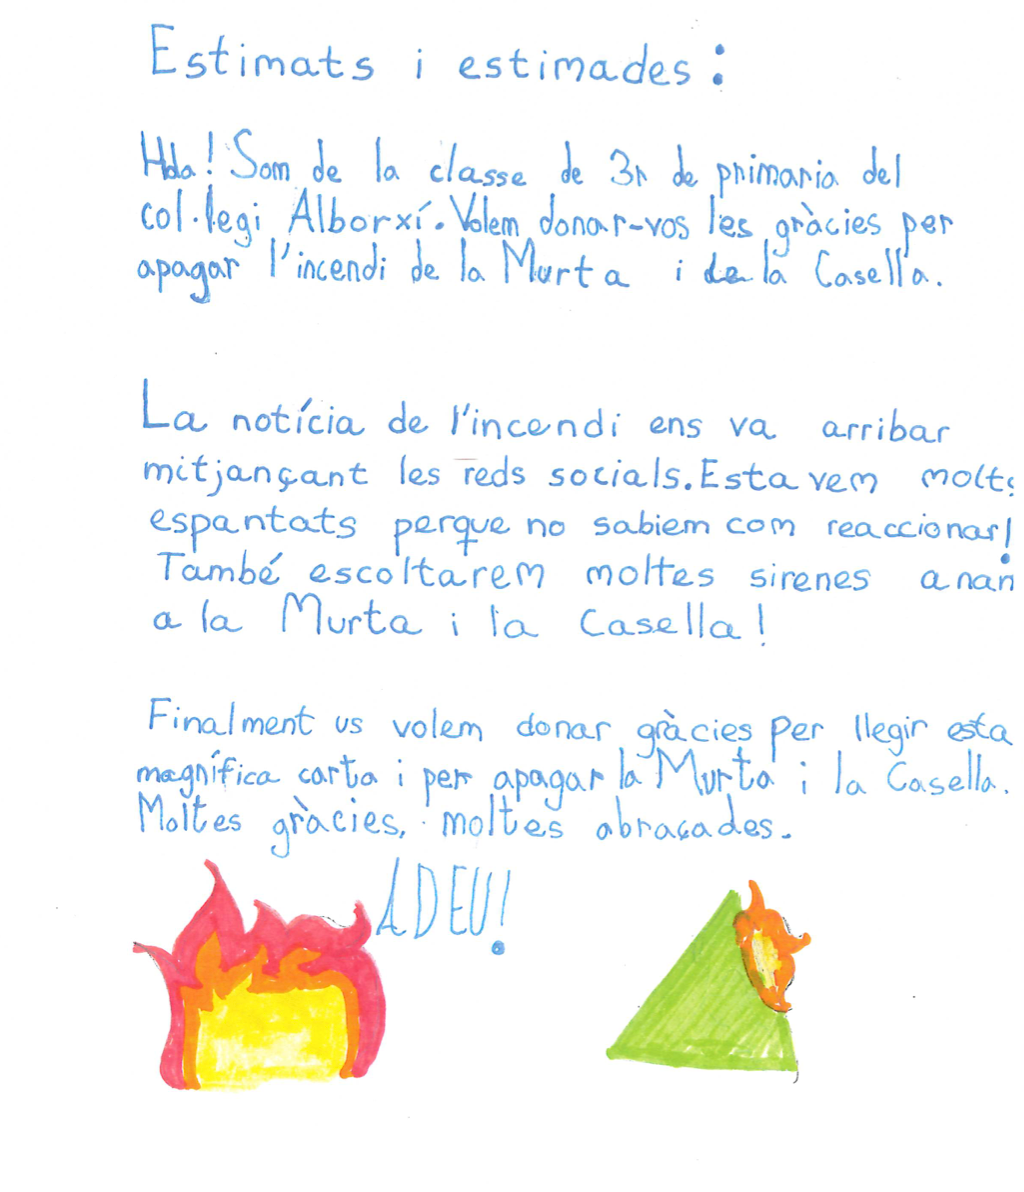 Estimats i estimades:
Hola! Som de la classe de 3r de primaria del
col·legi Alborxí. Volem donar-vos les gràcies per
apagar l'incendi de la Murta i de la Casella.
La notícia de l'incendi ens va arribar
mitjançant les reds socials. Estavem molts
espantats perque no sabiem com reaccionar!
També escoltarem moltes sirenes anan
a la Murta i la Casella!
Finalment us volem donar gràcies per llegir esta
magnífica carta i per apagar la Murta i la Casella.
Moltes gràcies, moltes abraçades.
ADEU!